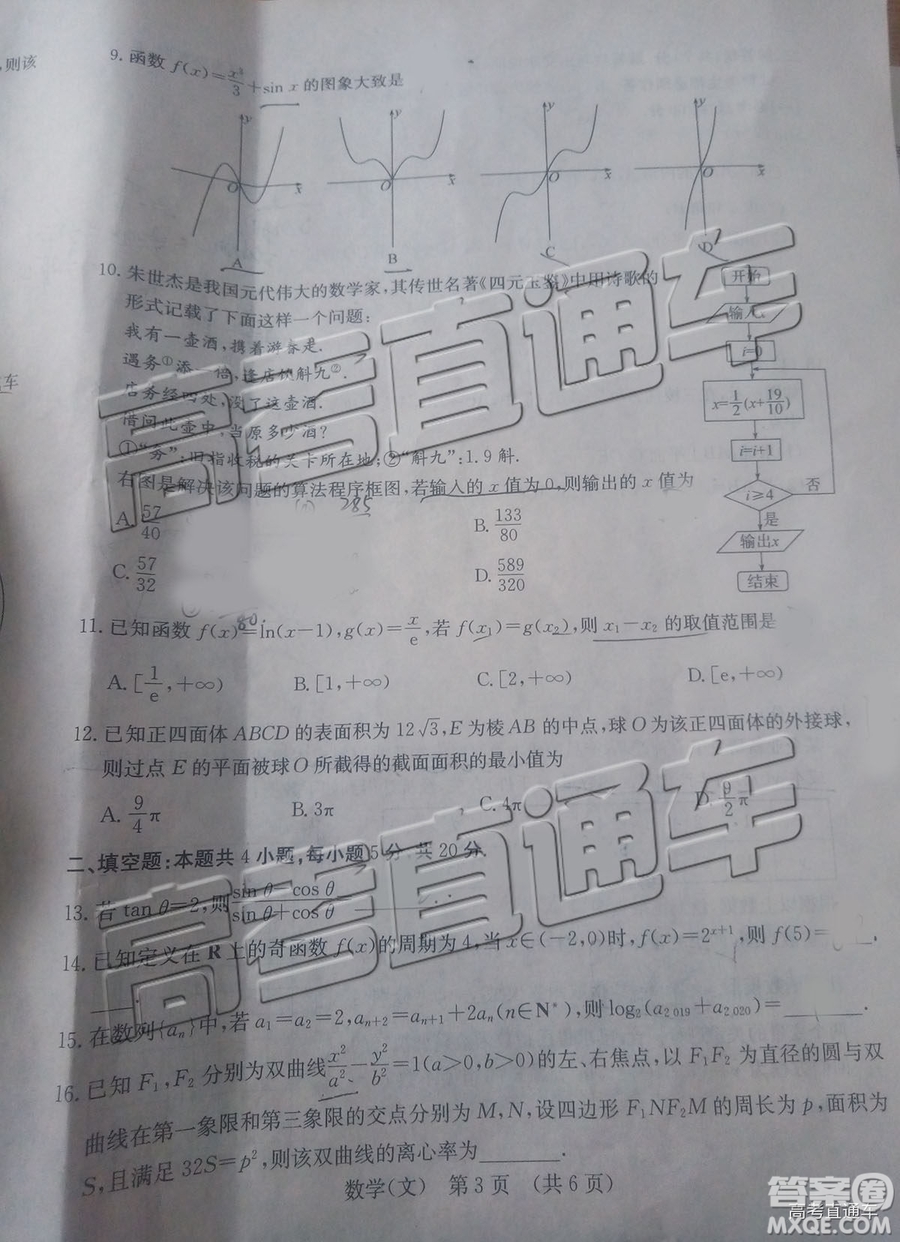 ,则该
9. 函数 f(x)=x³/3+sin x 的图象大致是
y y y y
O x O x O x O
A B C D
10. 朱世杰是我国元代伟大的数学家,其传世名著《四元玉鉴》中用诗歌的
形式记载了下面这样一个问题:
我有一壶酒,携着游春走.
遇务①添一倍,逢店饮斛九②.
店务经四处,没了这壶酒.
借问此壶中,当原多少酒?
①“务”:旧指收税的关卡所在地;②“斛九”:1.9 斛.
右图是解决该问题的算法程序框图,若输入的 x 值为 0,则输出的 x 值为
285
A. 57/40
B. 133/80
C. 57/32
D. 589/320
开始
输入
i=0
x=1/2(x+19/10)
i=i+1
i≥4
否
是
输出x
结束
80
11. 已知函数 f(x)=ln(x-1),g(x)=x/e,若 f(x₁)=g(x₂),则 x₁-x₂ 的取值范围是
A. [1/e,+∞) B. [1,+∞) C. [2,+∞) D. [e,+∞)
12. 已知正四面体 ABCD 的表面积为 12√3,E 为棱 AB 的中点,球 O 为该正四面体的外接球,
则过点 E 的平面被球 O 所截得的截面面积的最小值为
A. 9/4π B. 3π C. 4π D. 9/2π
二、填空题:本题共 4 小题,每小题 5 分 共 20 分
13. 若 tan θ=2,则 sin θ-cos θ/sin θ+cos θ
14. 已知定义在 R 上的奇函数 f(x)的周期为 4,当 x∈(-2,0)时,f(x)=2ˣ⁺¹,则 f(5)=____.
15. 在数列{aₙ}中,若 a₁=a₂=2,aₙ₊₂=aₙ₊₁+2aₙ(n∈N*),则 log₂(a₂₀₁₉+a₂₀₂₀)=________.
16. 已知 F₁,F₂ 分别为双曲线 x²/a²-y²/b²=1(a>0,b>0)的左、右焦点,以 F₁F₂ 为直径的圆与双
曲线在第一象限和第三象限的交点分别为 M,N,设四边形 F₁NF₂M 的周长为 p,面积为
S,且满足 32S=p²,则该双曲线的离心率为________.
数学(文) 第 3 页 (共 6 页)
高考直通车
高考直通车
答案圈
高考直通车
MXQE.COM